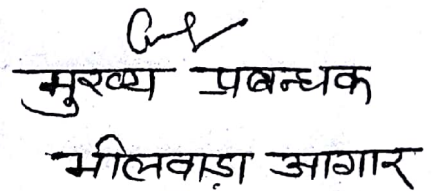 मुख्य प्रबन्धक
भीलवाड़ा आगार